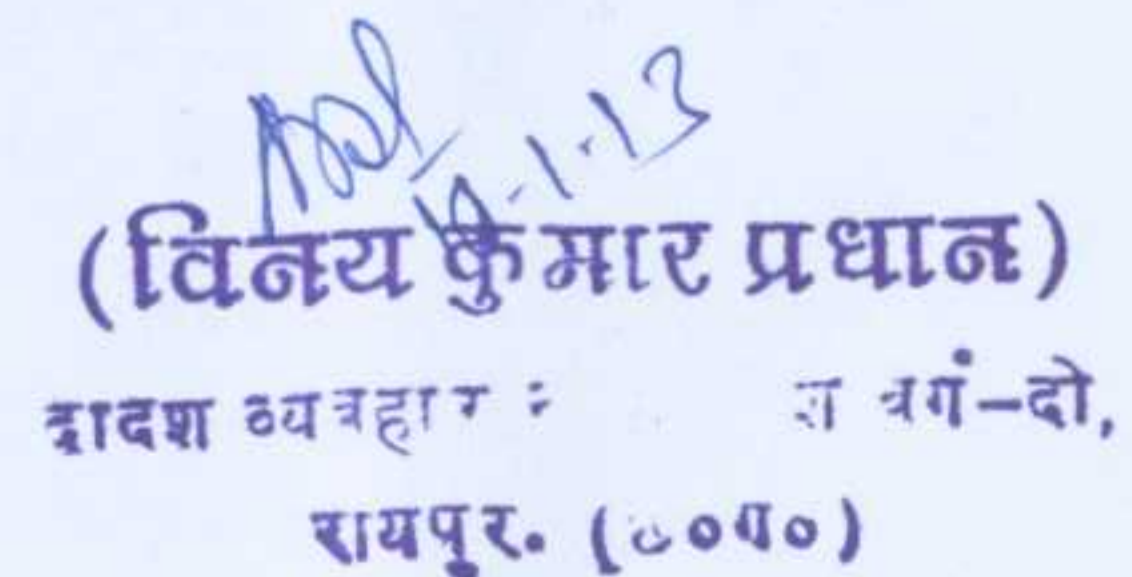 (विनय कुमार प्रधान)
द्वादश व्यवहार वर्ग-दो,
रायपुर. (छ०ग०)